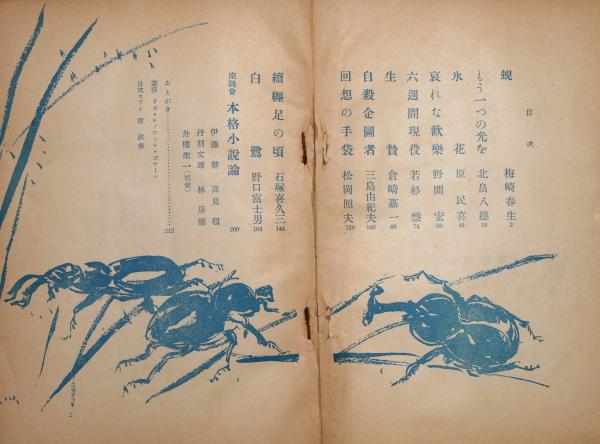 目次
蜆 梅崎春生 2
もう一つの光を 北畠八穂 18
氷花 原民喜 44
哀れな歓樂 野間宏 60
六週間現役 若杉慧 74
生贄 倉崎嘉一 88
自殺企圖者 三島由紀夫 102
回想の手袋 松岡照夫 120
續纏足の頃 石塚喜久三 144
白鷺 野口富士男 164
座談會 本格小説論 200
伊藤整 高見順
丹羽文雄 林房雄
舟橋聖一(司會)
あとがき 212